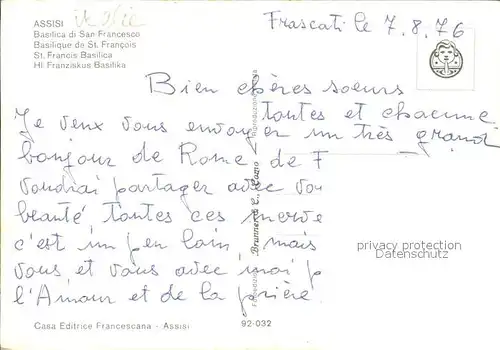 ASSISI Italie
Basilica di San Francesco
Basilique de St. François
St. Francis Basilica
Hl Franziskus Basilika
Frascati le 7.8.76
Bien chères soeurs
toutes et chacune
Je veux vous envoyer un très grand
bonjour de Rome de F
voudrai partager avec vou
beauté toutes ces merve
c'est un peu loin, mais
vous et vous avec moi p
l'Amour et de la prière
privacy protection
Datenschutz
Brunner & C., Como
Casa Editrice Francescana - Assisi
92-032